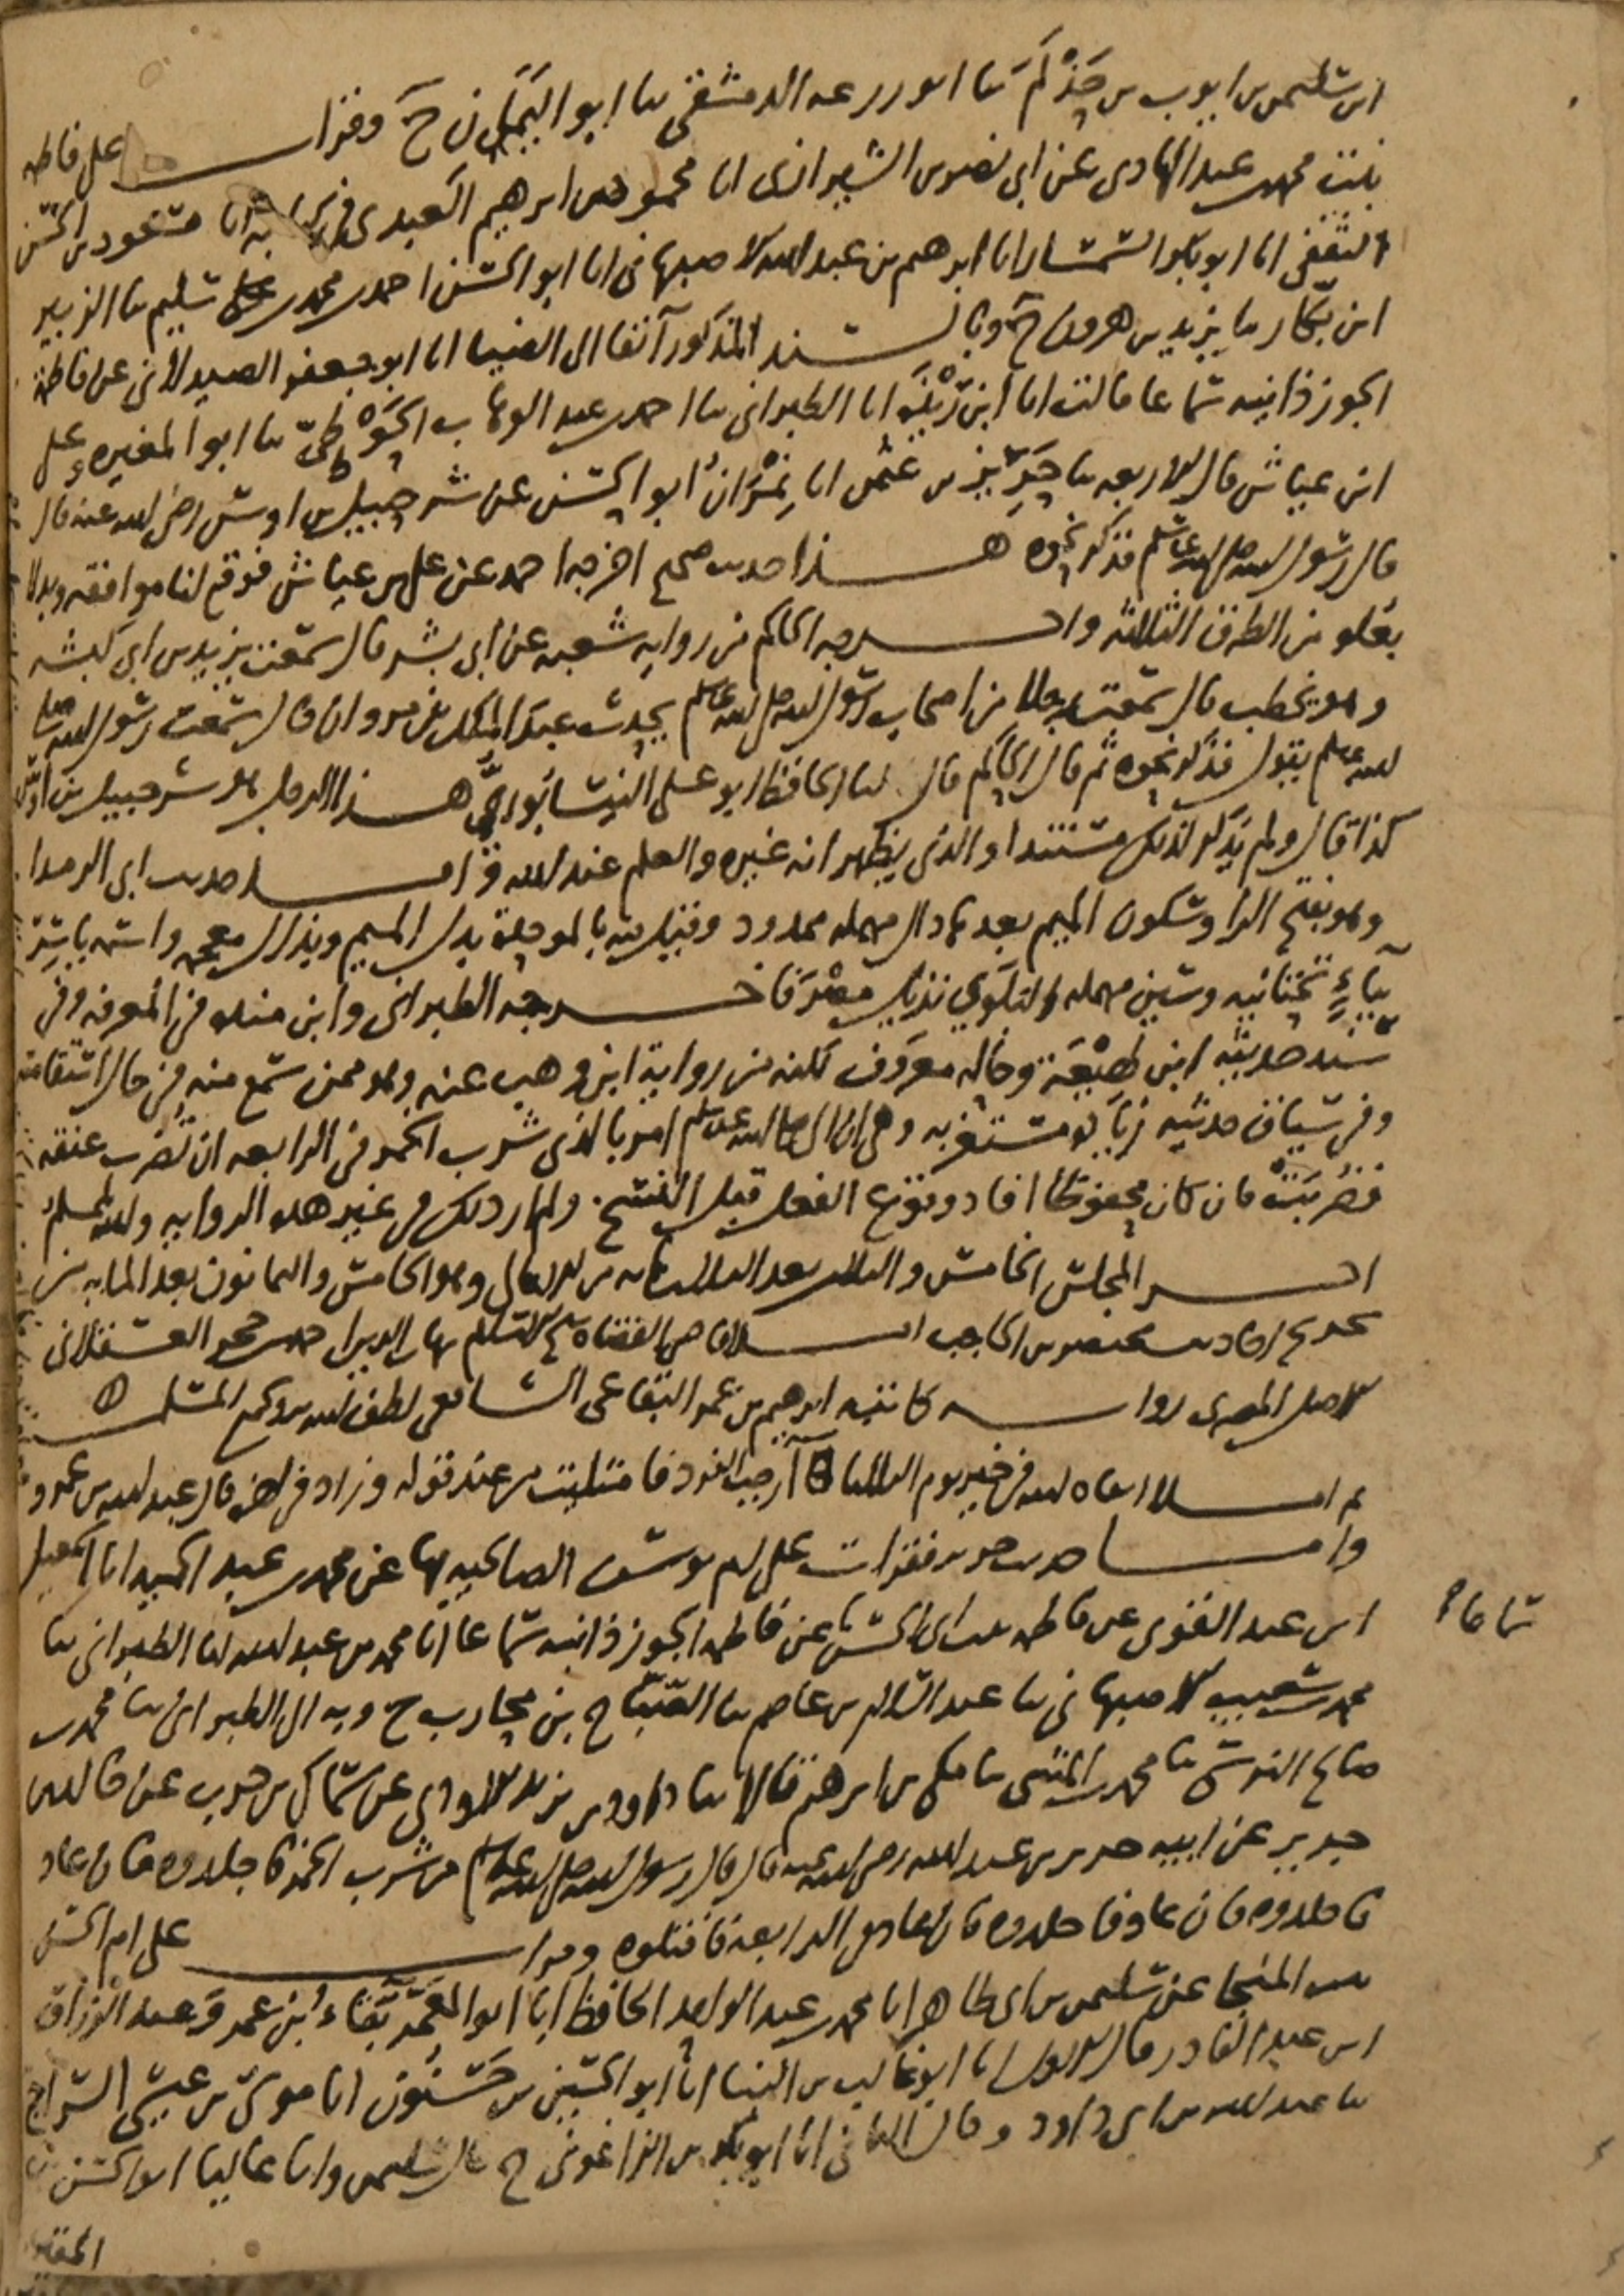 ابن سليمن بن ايوب بن حَذْلَم ثنا ابو زرعه الدمشقي ثنا ابو اليَمَان ح وقرات على فاطمه
بنت محمد بن عبد الهادي عن ابي نصر بن الشيرازي انا محمود بن ابرهيم العبدي في كتابه انا مسعود بن الحسن
الثقفي انا ابو بكر السمسار انا ابرهيم بن عبد الله الاصبهاني انا ابو الحسن احمد بن محمد بن سليم ثنا الزبير
ابن بكار ثنا يزيد بن هرون ح وبالسند المذكور آنفا الى الضيا انا ابو جعفر الصيدلاني عن فاطمة
الجوزذانيه سماعا قالت انا ابن رِيْذَة انا الطبراني ثنا احمد بن عبد الوهاب الحَوْطيّ ثنا ابو المغيره وعلى
ابن عياش قال الاربعه ثنا حَرِيْز بن عثمن انا نِمْرَانُ ابو الحسن عن شرحبيل بن اوس رضي الله عنه قال
قال رسول الله صلى الله عليه وسلم فذكر نحوه هذا حديث صحيح اخرجه احمد عن على بن عياش فوقع لنا موافقه وبدلا
بعُلو من الطرق الثلاثة واخرجه الحاكم من روايه شعبه عن ابي بشر قال سمعت يزيد بن ابي كبشه
وهو يخطب قال سمعت رجلا من اصحاب رسول الله صلى الله عليه وسلم يحدث عبد الملك بن مروان قال سمعت رسول الله صلى
الله عليه وسلم يقول فذكر نحوه ثم قال الحاكم قال لنا الحافظ ابو على النيسابوريُّ هذا الرجل هو شرحبيل بن اوس
كذا قال ولم يذكر لذلك مستندا والذي يظهر انه غيره والعلم عند الله واما حديث ابي الرمدا
وهو بفتح الرا وسكون الميم بعدها دال مهمله ممدود وقيل فيه بالموحدة بدل الميم وبذال معجمه واسمه ياسر
بياءٍ تحتانيه وسين مهمله البلَوي نزيل مصْرَ فاخرجه الطبراني وابن منده في المعرفه وفي
سند حديثه ابن لهِيْعَة وحاله معروف لكنه من رواية ابن وهب عنه وهو ممن سمع منه في حال استقامته
وفي سياق حديثه زيادة مستغربه وهي ان النبي صلى الله عليه وسلم امر بالذي شرب الخمر في الرابعه ان تُضرب عنقه
فضُرِبَتْ فان كان محفوظا افاد وقوع الفعل قبل النسخ. ولم ار ذلك في غير هذه الروايه ولله الحمد
اخر المجلس الخامس والثلاثين بعد الثلثمايه من الامالي وهو الخامس والثمانون بعد المايه من
تخريج احاديث مختصر بن الحاجب املا قاضي القضاه شيخ الاسلام شهاب الدين احمد بن حجر العسقلاني
الاصل المصري روايه كاتبه ابرهيم بن عمر البقاعي الشافعي لطف الله به وبكم المسلمين ه
ثم املا ابقاه الله في خير يوم الثلاثا رجب الفرد فاستمليت من عند قوله وزاد في اخره قال عبد الله بن عمرو
واما حديث جرير فقرات على ام يوسف الصالحيه بها عن محمد بن عبد الحميد انا اسمعيل
ابن عبد القوى عن فاطمه بنت ابي الحسن عن فاطمه الجوزذانيه سماعا انا محمد بن عبد الله انا الطبراني ثنا
محمد بن شعيب الاصبهاني ثنا عبد السلام بن عاصم ثنا الصَّبّاح بن محارب ح وبه الى الطبراني ثنا محمد بن
صالح النرسي ثنا محمد بن المثنى ثنا مكي بن ابرهيم قالا ثنا داود بن يزيد الاودي عن سماك بن حرب عن خالد بن
جرير عن ابيه جرير بن عبد الله رضي الله عنه قال قال رسول الله صلى الله عليه وسلم من شرب الخمر فاجلدوه فان عاد
فاجلدوه فان عاد فاجلدوه فان عاد في الرابعة فاقتلوه وقرات على ام الحسن
بنت المنجا عن سليمن بن ابي طاهر انا محمد بن عبد الواحد الحافظ انا ابو المُعَمَّر بَقَاء بن عمر وعبد الرزاق
ابن عبد القادر قال الاول انا ابو غالب بن البنا انا ابو الحسين بن حَسْنُون انا موسى بن عيسى السراج
ثنا عبد الله بن ابي داود وقال الثاني انا ابو بكر بن الزاغوني ح قال سليمن وانا عاليا ابو الحسن بن
المقير